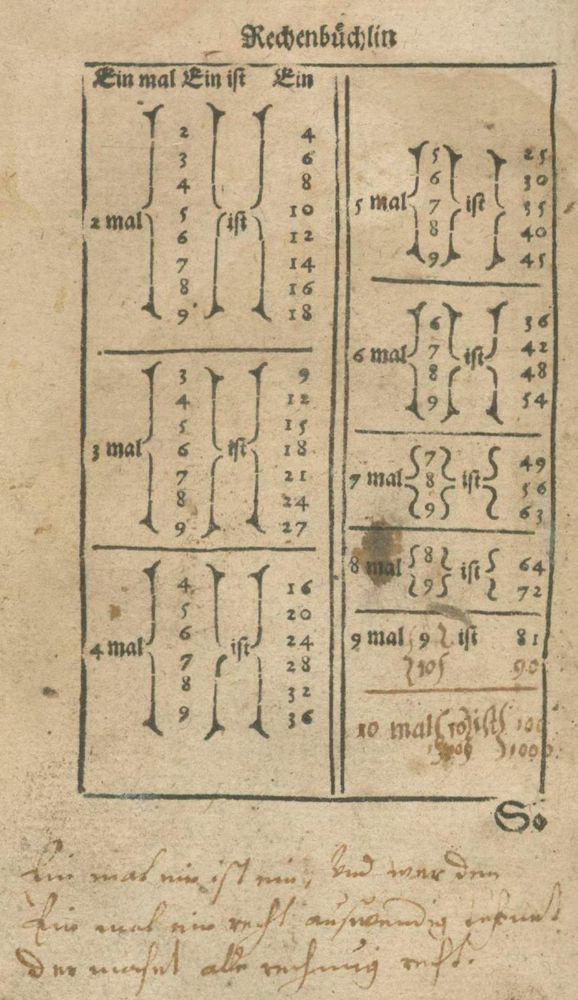 Rechenbüchlin
Ein mal Ein ist Ein
2 mal 2 ist 4
3 6
4 8
5 10
6 12
7 14
8 16
9 18
3 mal 3 ist 9
4 12
5 15
6 18
7 21
8 24
9 27
4 mal 4 ist 16
5 20
6 24
7 28
8 32
9 36
5 mal 5 ist 25
6 30
7 35
8 40
9 45
6 mal 6 ist 36
7 42
8 48
9 54
7 mal 7 ist 49
8 56
9 63
8 mal 8 ist 64
9 72
9 mal 9 ist 81
10 90
10 mal 10 ist 100
1000
So
Ein mal ein ist ein, Vnd wer den
Ein mal ein recht auswendig
der machet alle rechnung recht.